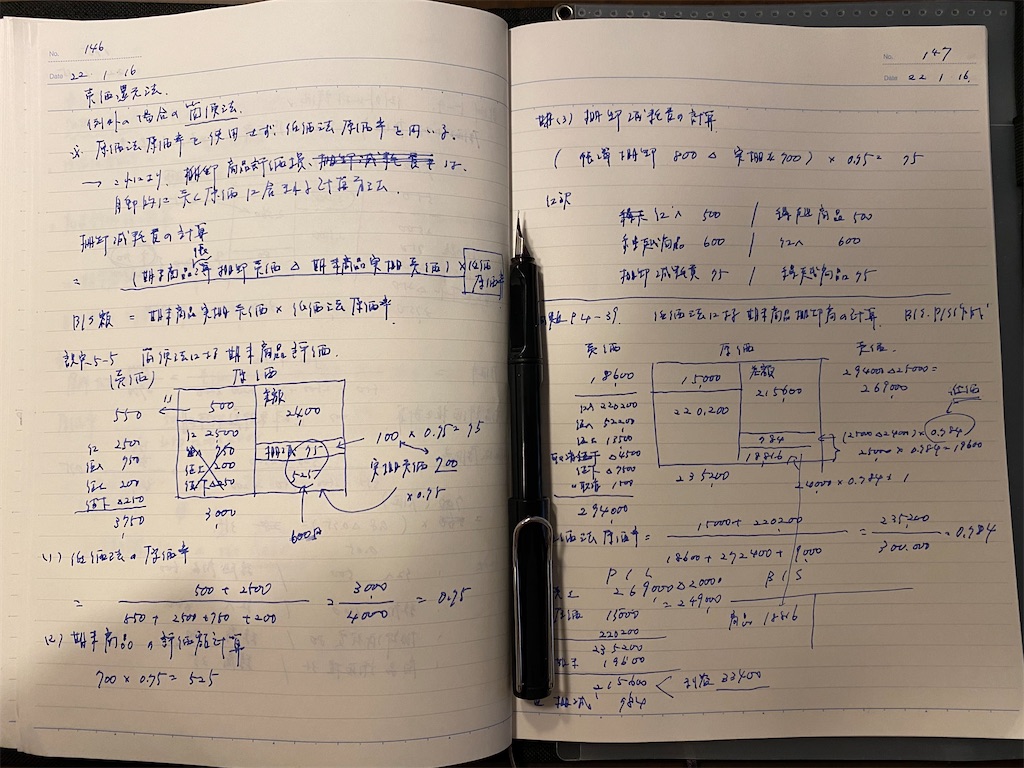 No. 146
Date 22 1 16
売価還元法.
例外の場合の簡便法.
※ 原価法原価率を使用せず、低価法原価率を用いる.
→ これにより、棚卸商品評価損、棚卸減耗費は、
自動的に売上原価に含まれる計算方法.
棚卸減耗費の計算
= (期末商品帳簿棚卸売価 △ 期末商品実棚売価) × 低価原価率
B/S額 = 期末商品実棚売価 × 低価法原価率.
設定5-5 簡便法における期末商品評価.
(売価) 原価
550 500 差額 2400
仕 2500 仕 2500
値入 750 値入 750
値上 200 値上 200
値下 △250 値下 △250
3750 3000
棚減 75
525
100 × 0.75 = 75
実棚売価 700
× 0.75
600
(1) 低価法の原価率
= 500 + 2500 / 550 + 2500 + 750 + 200 = 3000 / 4000 = 0.75
(2) 期末商品の評価額計算
700 × 0.75 = 525
No. 147
Date 22 1 16.
期(3) 棚卸減耗費の計算
(帳簿棚卸 800 △ 実棚 700) × 0.75 = 75
仕訳
仕入 500 / 繰越商品 500
繰越商品 600 / 仕入 600
棚卸減耗費 75 / 繰越商品 75
問題P4-39. 低価法における期末商品棚卸高の計算. B/S.P/S
売価 原価 売価
18600 15000 差額 215600 294000 △ 25000 =
269000
仕入 220200 220,200
値入 52200
値上 13500
△4500
値下 △7500
取消 1500
294000 235200
984
18816
(25000 △ 24000) × 0.984
25000 × 0.984 = 19600
24000 × 0.784 =
低価法原価率 = 15000 + 220200 / 18600 + 272400 + 9000 = 235200 / 300,000 = 0.984
P/L B/S
売上 269000 △ 20000
= 249000
原価 15000
220200
235200
期末 19600
215600 < 利益 33400
棚減 984
商品 18816